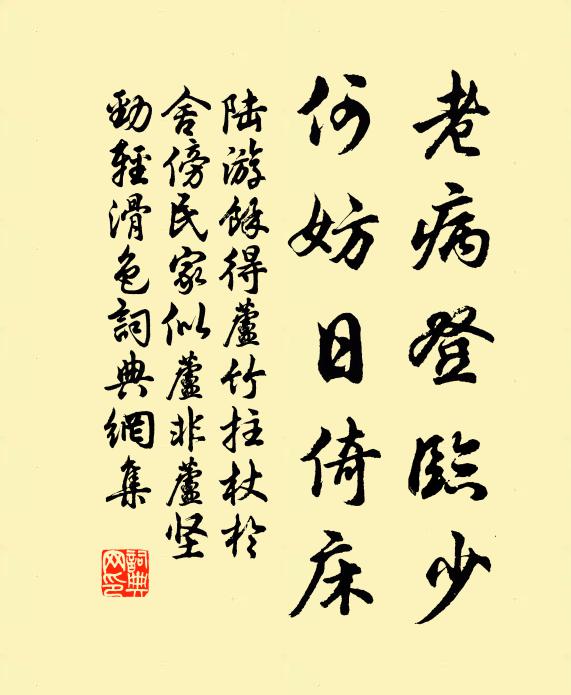 老病登臨少
何妨日倚床
陸游餘得蘆竹拄杖於
舍傍民家似蘆非蘆堅
勁輕滑色詞典網集
詞典
网印